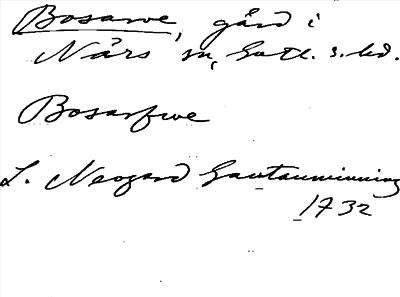 Bosarve, gård i
När s sn, Gotl. s. hd.
Bosarfwe
L. Neogard Gautauminning
1732